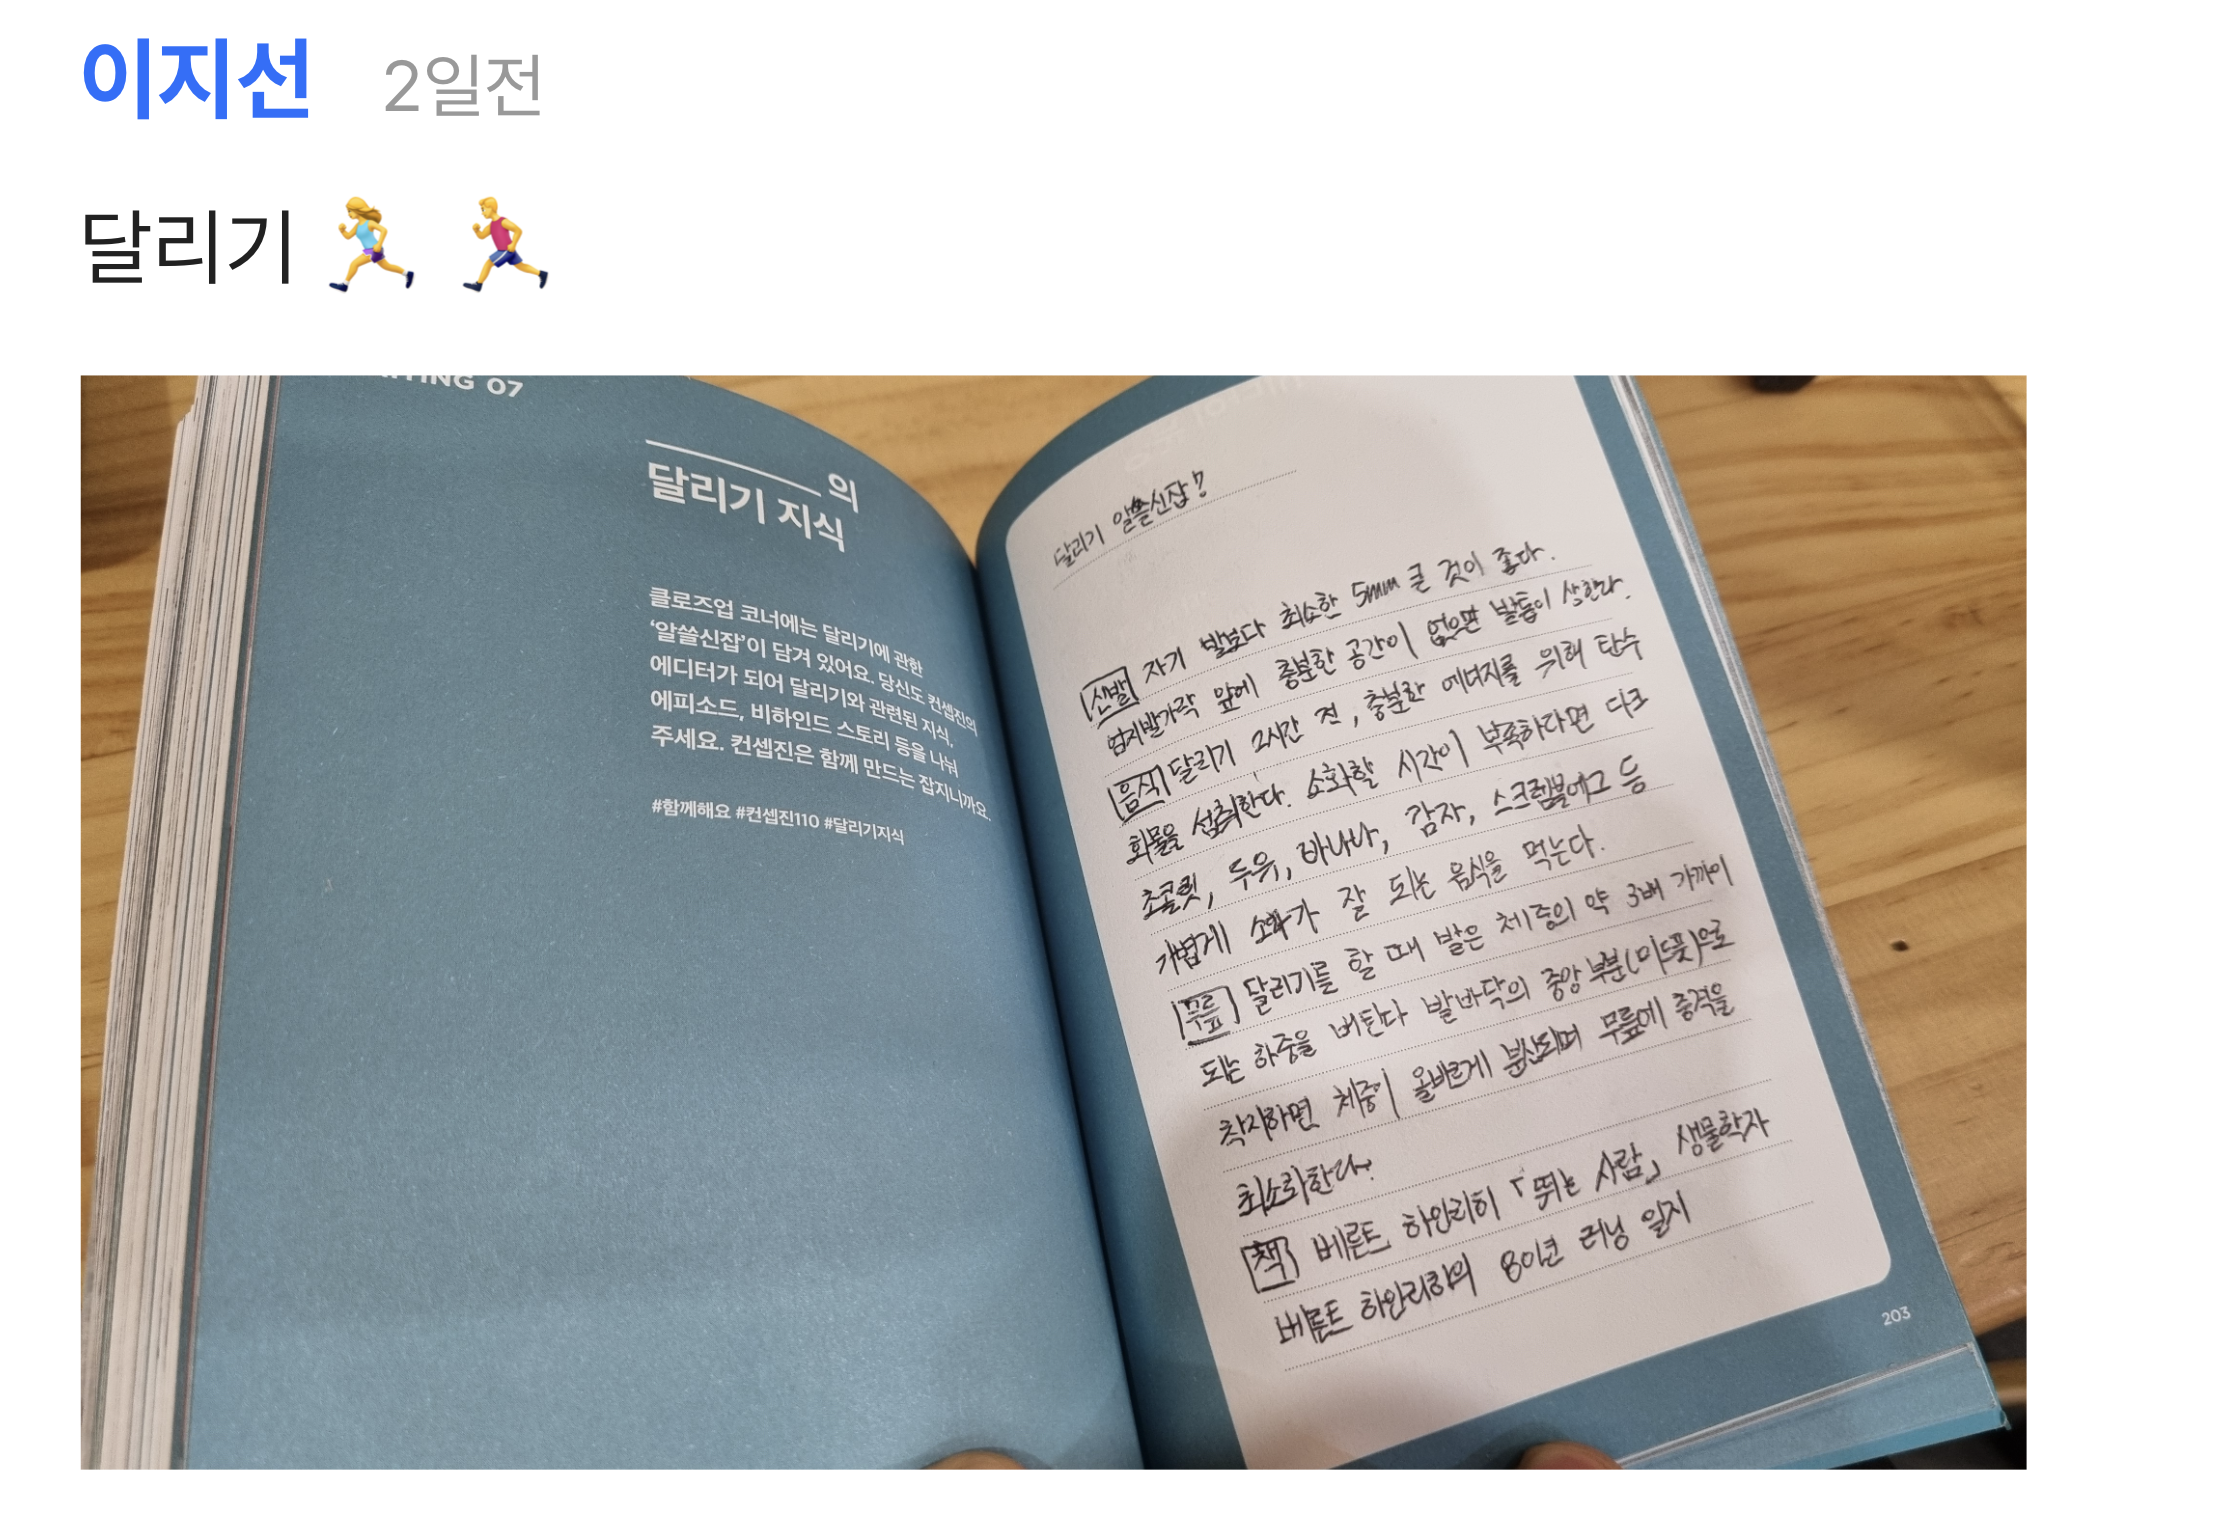 이지선 2일전
달리기 🏃‍♀️ 🏃‍♂️
TING 07
의
달리기 지식
클로즈업 코너에는 달리기에 관한
‘알쓸신잡’이 담겨 있어요. 당신도 컨셉진의
에디터가 되어 달리기와 관련된 지식,
에피소드, 비하인드 스토리 등을 나눠
주세요. 컨셉진은 함께 만드는 잡지니까요.
#함께해요 #컨셉진110 #달리기지식
달리기 알쓸신잡?
신발 자기 발보다 최소한 5mm 큰 것이 좋다.
엄지발가락 앞에 충분한 공간이 없으면 발톱이 상한다.
음식 달리기 2시간 전, 충분한 에너지를 위해 탄수
화물을 섭취한다. 소화할 시간이 부족하다면 다크
초콜릿, 두유, 바나나, 감자, 스크램블에그 등
가볍게 소화가 잘 되는 음식을 먹는다.
무릎 달리기를 할 때 발은 체중의 약 3배 가까이
되는 하중을 버틴다 발바닥의 중앙 부분(미드풋)으로
착지하면 체중이 올바르게 분산되며 무릎에 충격을
최소화한다.
책 베른트 하인리히 「뛰는 사람」 생물학자
베른트 하인리히의 80년 러닝 일지
203